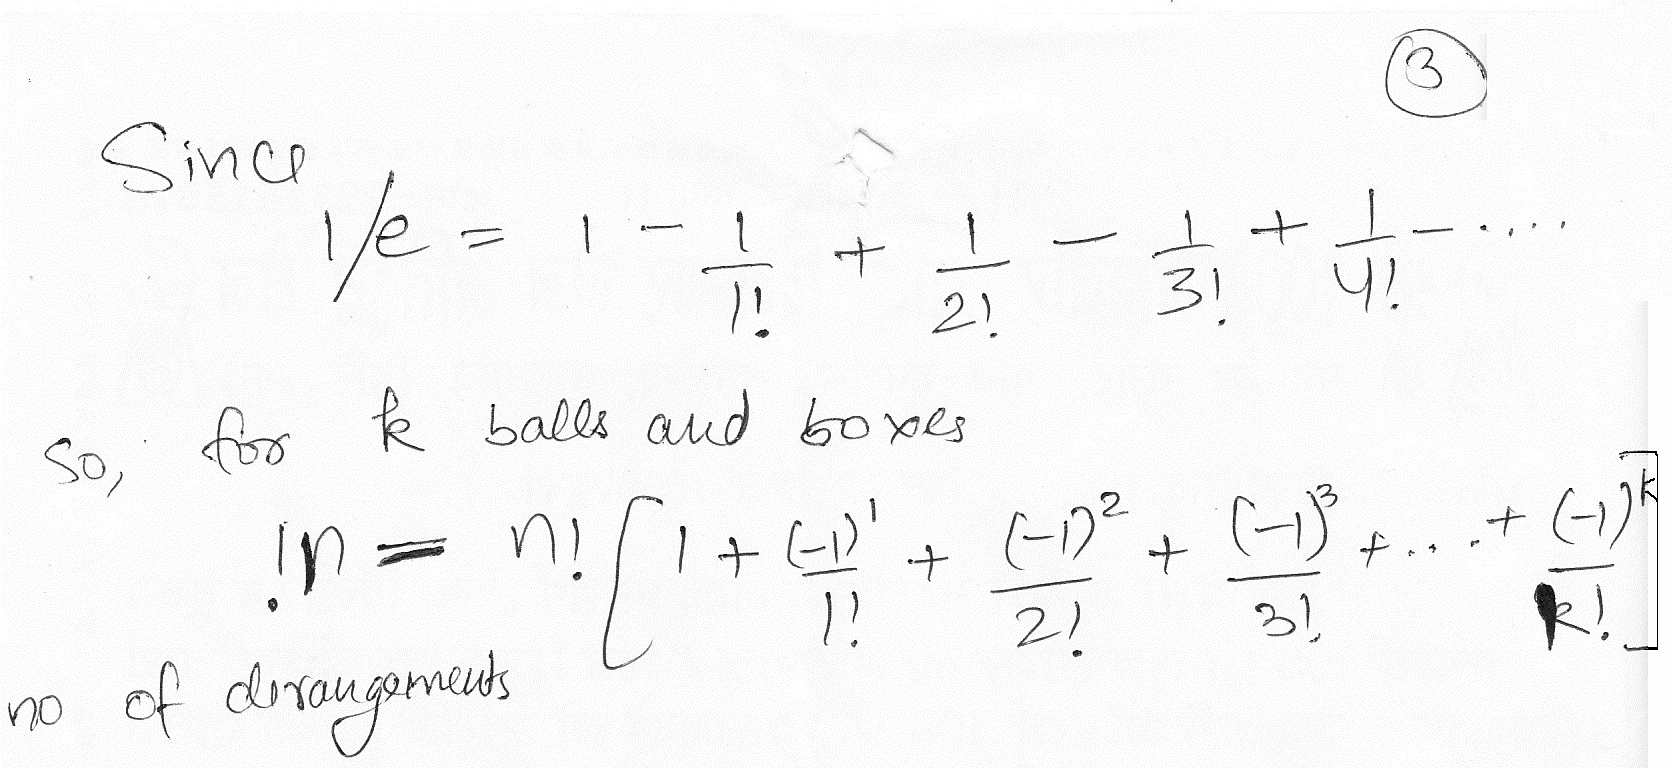 3
Since
1/e = 1 - 1/1! + 1/2! - 1/3! + 1/4! - .....
so, for k balls and boxes
!n = n! [ 1 + (-1)^1/1! + (-1)^2/2! + (-1)^3/3! + ..... + (-1)^k/k! ]
no of derangements